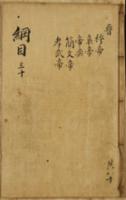 晉
穆帝
哀帝
帝奕
簡文帝
孝武帝
綱目
三十